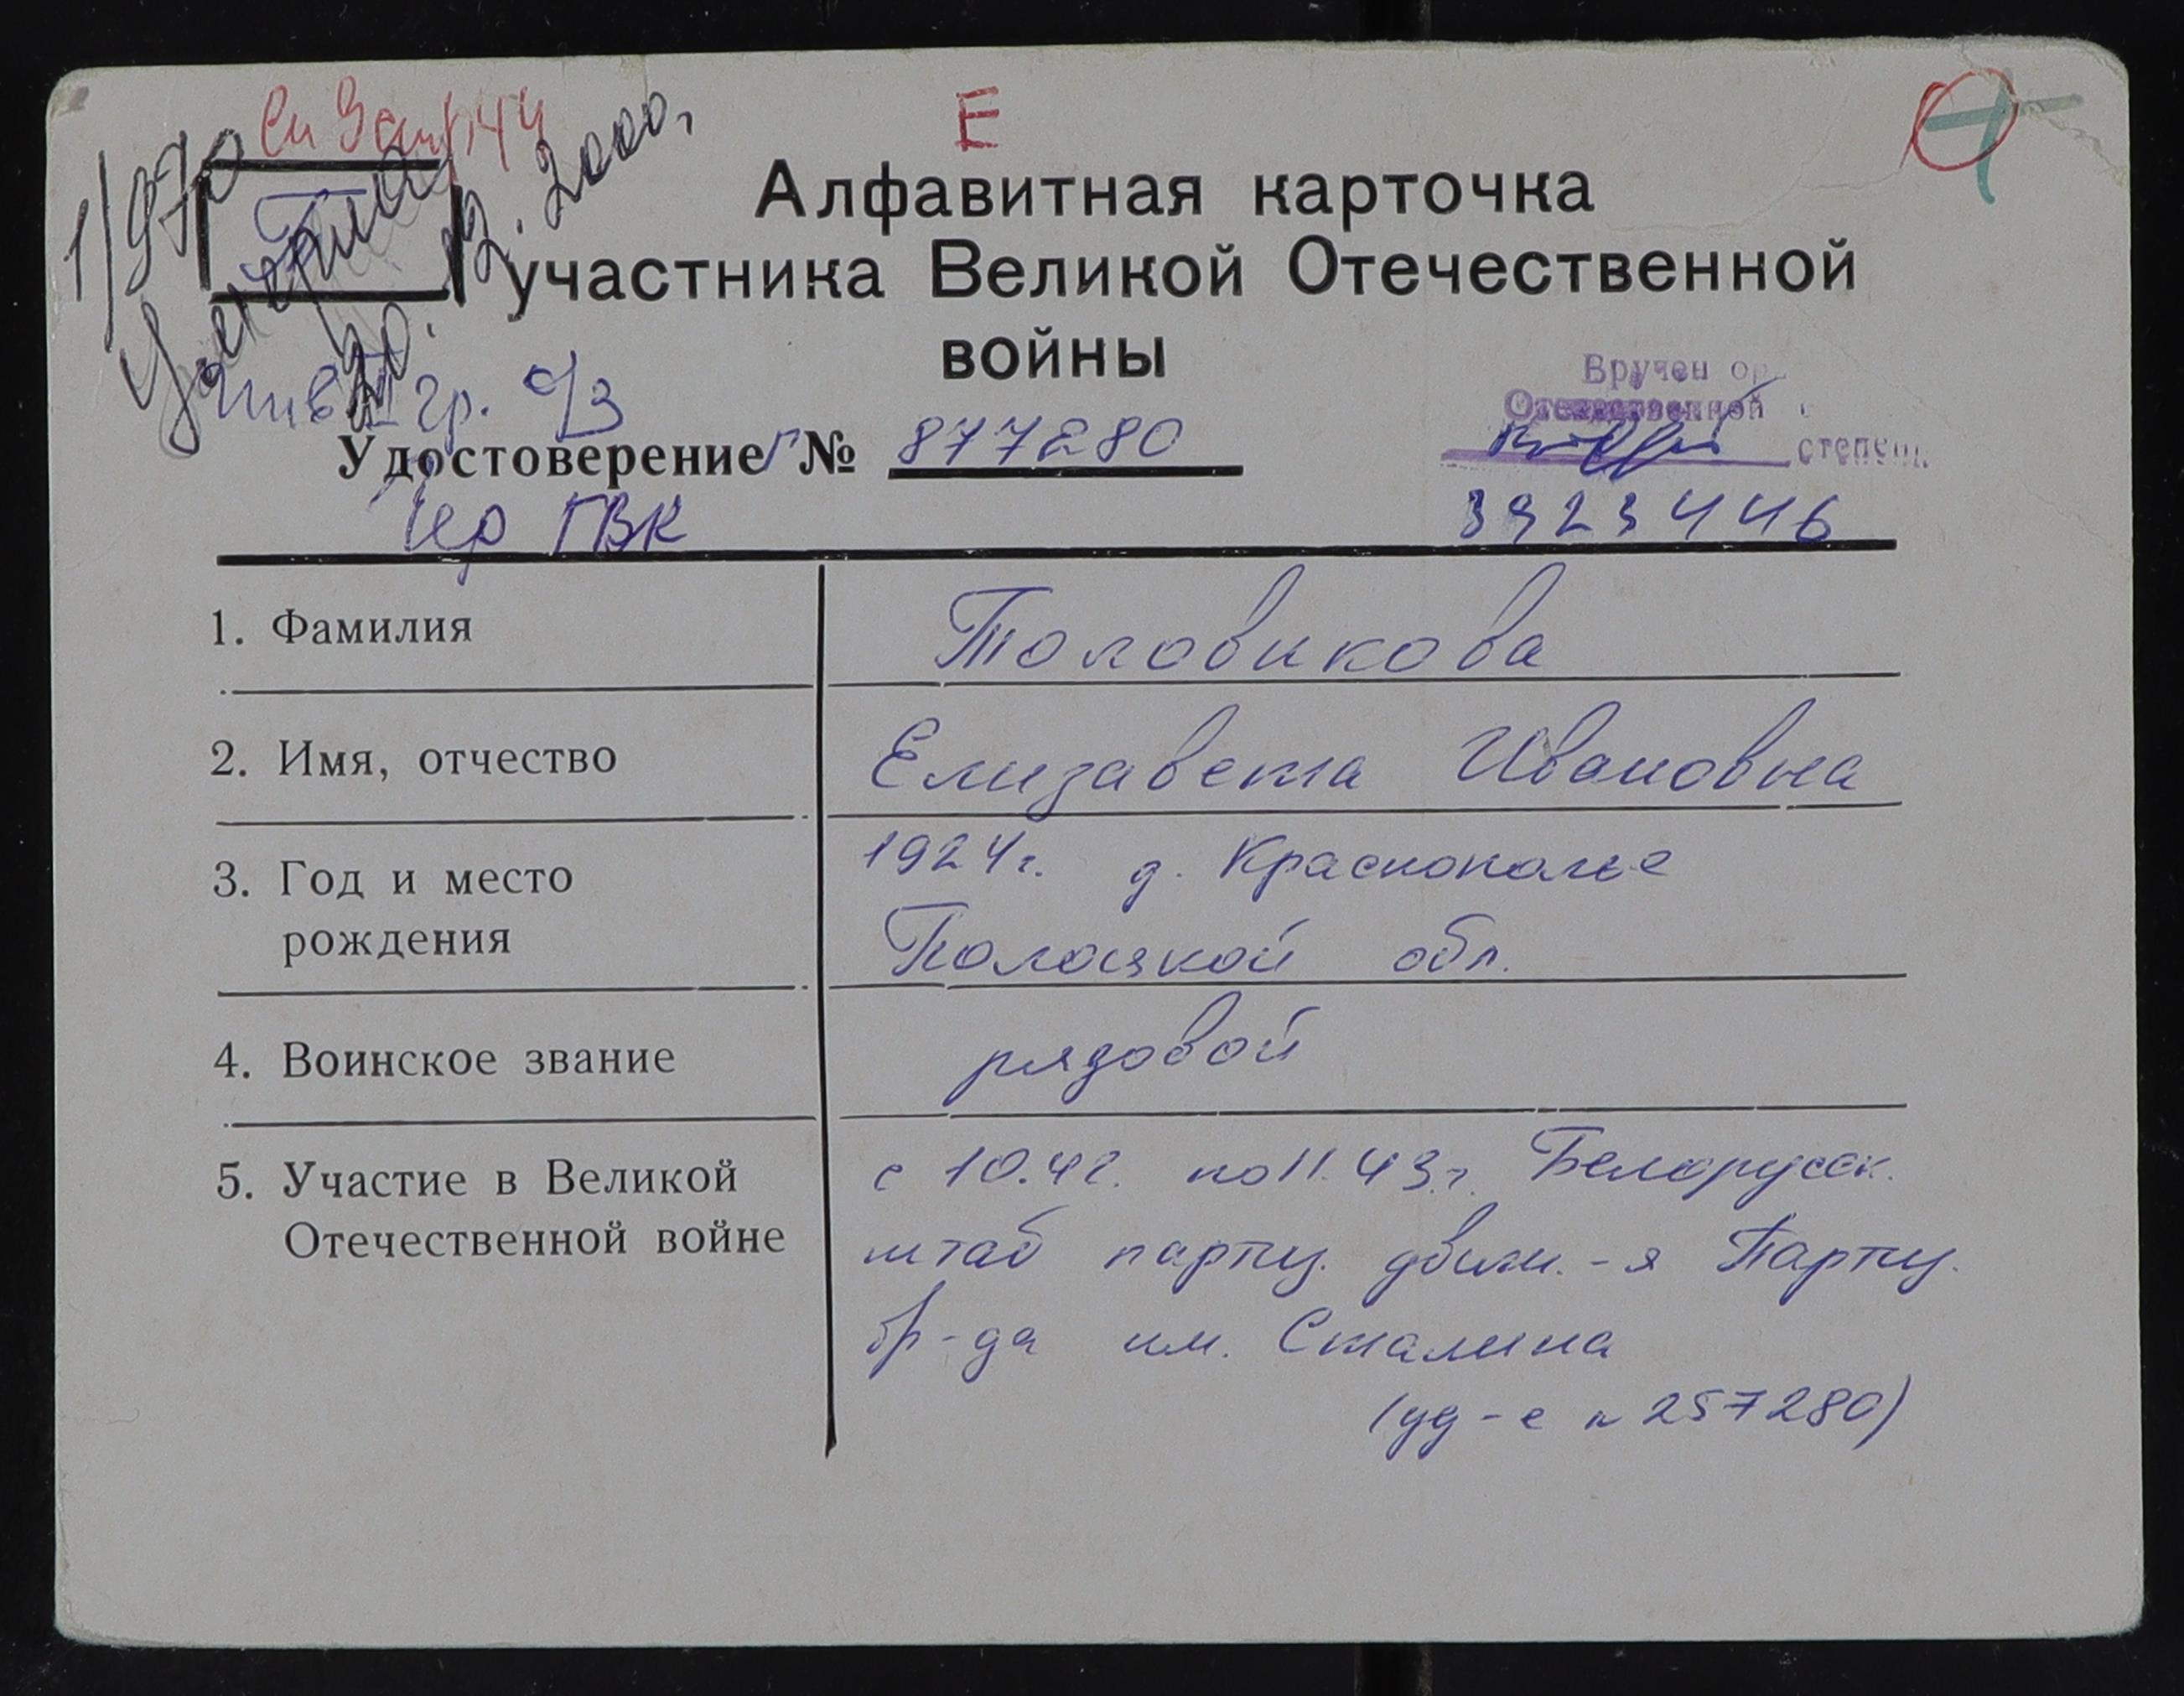 Е
1/970
Умерла
20.12.2000,
Т
Алфавитная карточка
участника Великой Отечественной
войны
инв II гр. о/з
Вручен
Отечественной
степени
Удостоверение Г № 877280
ГВК
3923446
1. Фамилия Половикова
2. Имя, отчество Елизавета Ивановна
3. Год и место 1924г. д. Краснополье
рождения Полоцкой обл.
4. Воинское звание рядовой
5. Участие в Великой с 10.42. по 11.43.г. Белорусск.
Отечественной войне штаб партиз. движ.-я Партиз.
бр-да им. Сталина
(уд-е № 257280)